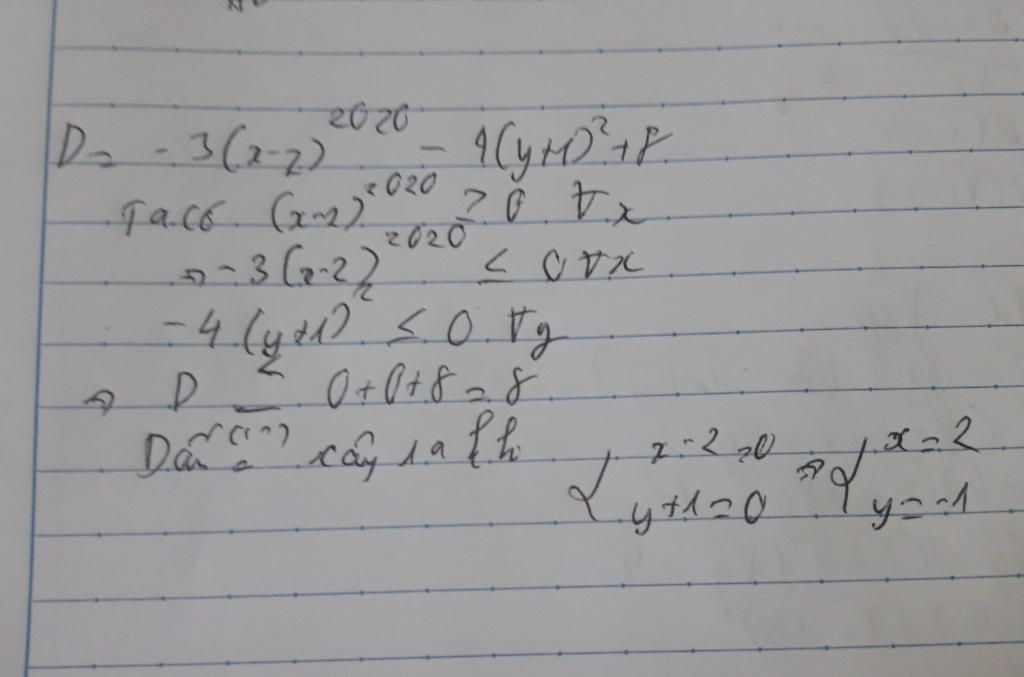 D = -3(x-2)^2020 - 4(y+1)^2 + 8
Ta có (x-2)^2020 ≥ 0 ∀x
⇒ -3(x-2)^2020 ≤ 0 ∀x
-4(y+1)^2 ≤ 0 ∀y
⇒ D ≤ 0+0+8 = 8
Dấu "=" xảy ra { x-2=0 ⇒ { x=2
y+1=0 y=-1